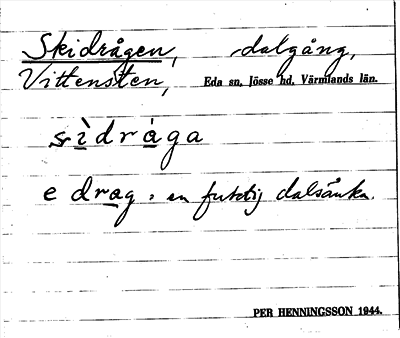 Skidrågen, dalgång,
Vittensten, Eda sn, Jösse hd, Värmlands län.
sìdràga
e drag = en fuktig dalsänka.
PER HENNINGSSON 1944.